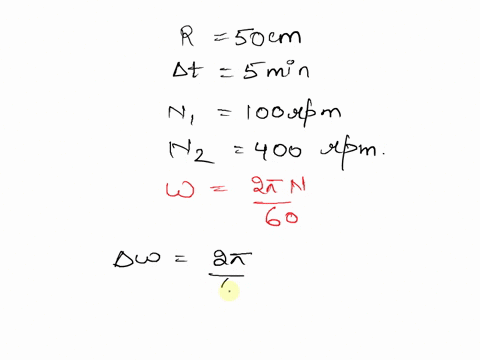 R = 50cm
Δt = 5min
N₁ = 100rpm
N₂ = 400 rpm.
ω = 2πN/60
Δω = 2π/